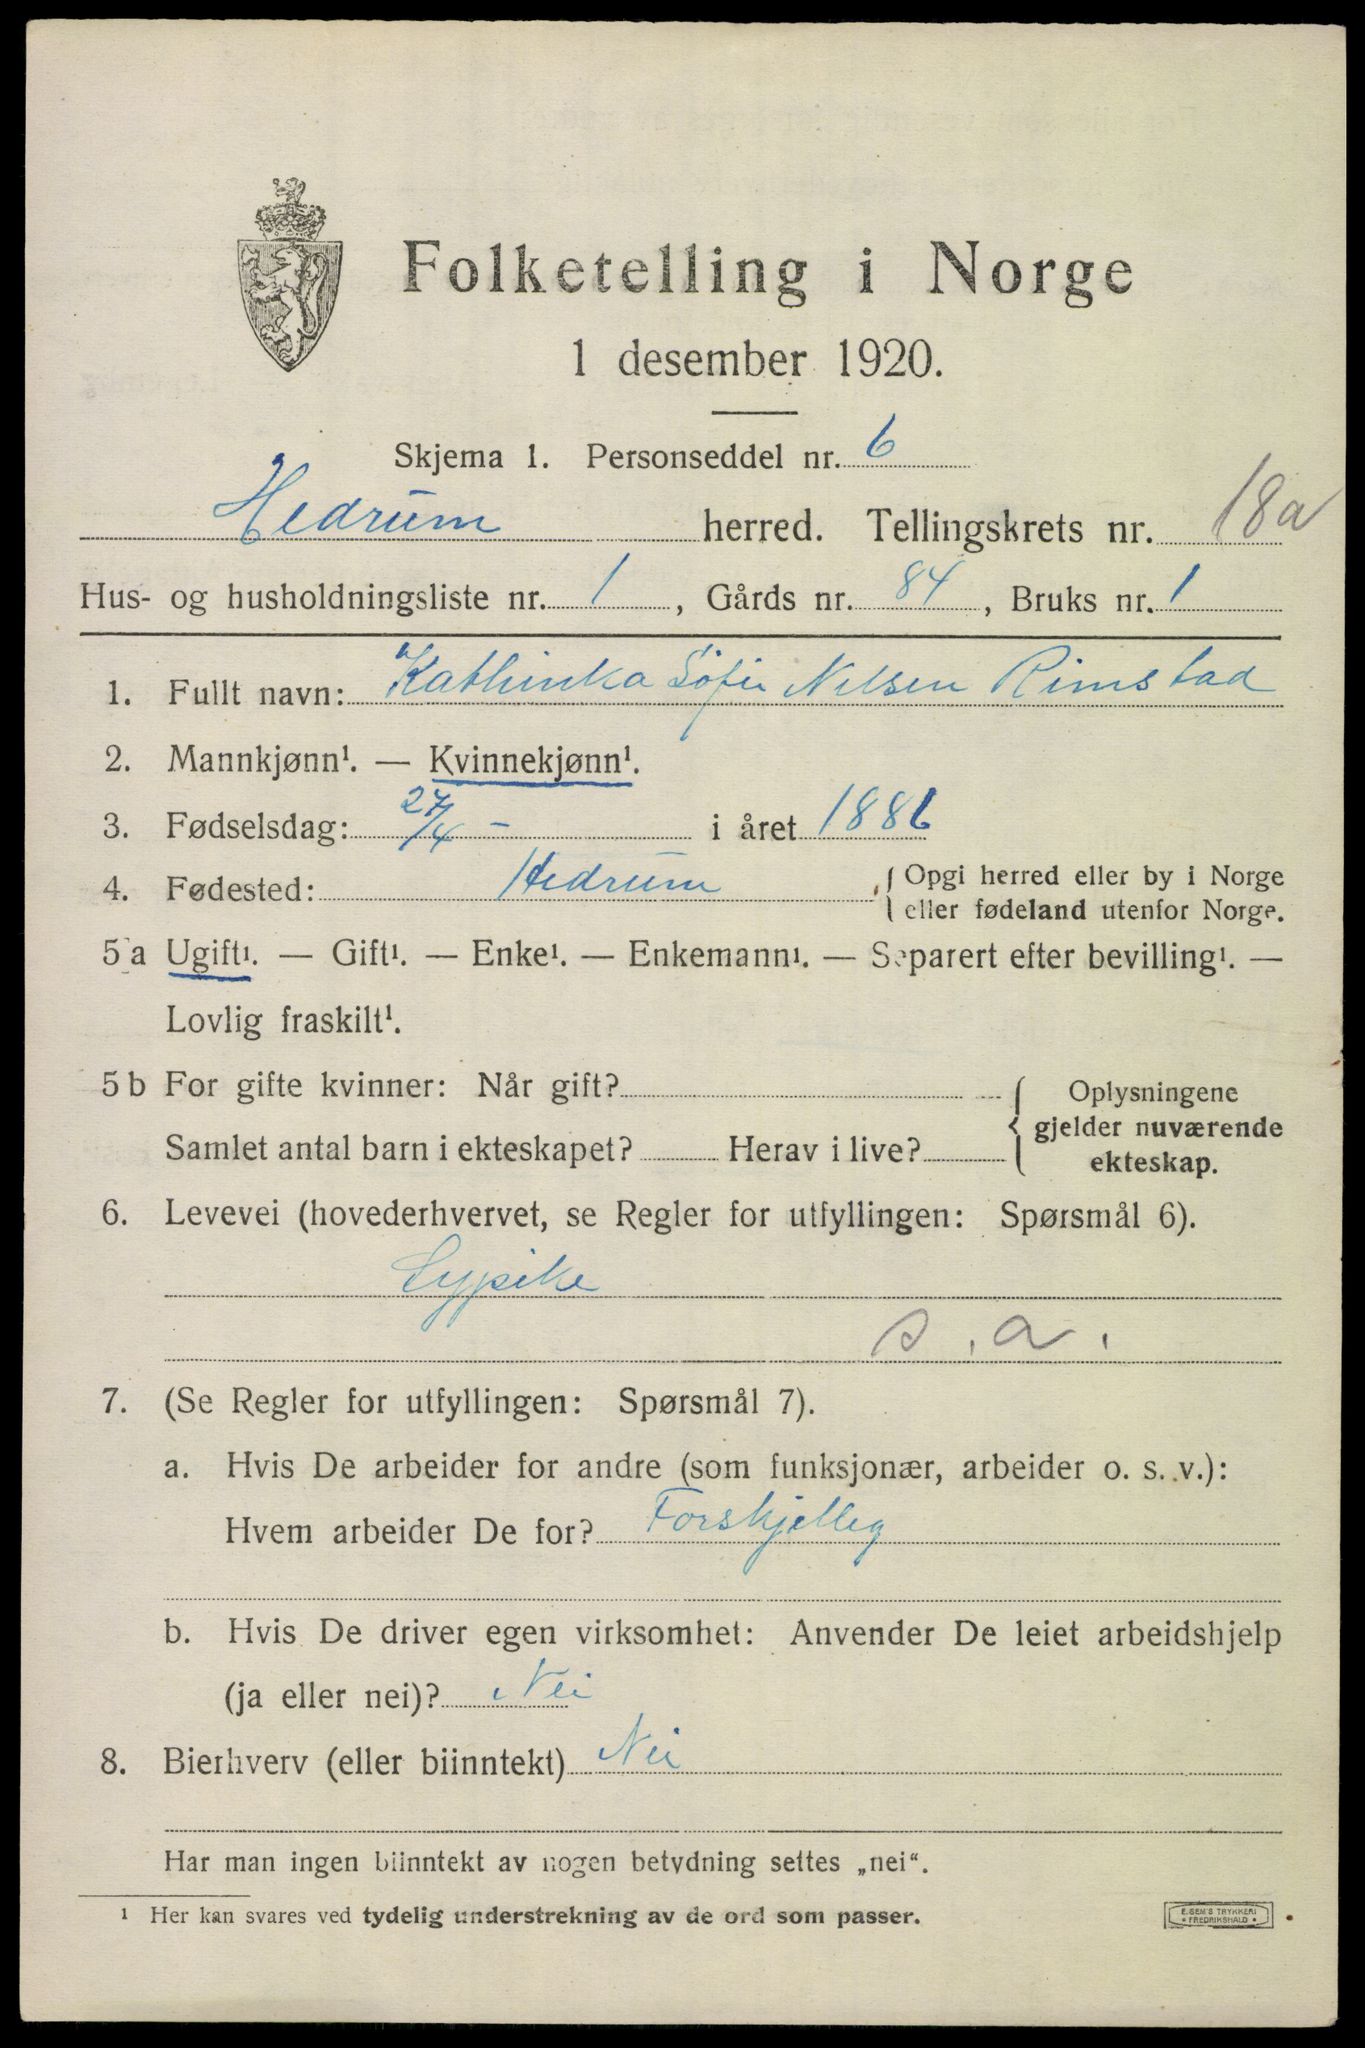 Folketelling i Norge
1 desember 1920.
Skjema 1. Personseddel nr. 6
Hedrum herred. Tellingskrets nr. 18a
Hus- og husholdningsliste nr. 1, Gårds nr. 84, Bruks nr. 1
1. Fullt navn: Kathinka Sofie Nilsen Rimstad
2. Mannkjønn¹. — Kvinnekjønn¹.
3. Fødselsdag: 27/4 - i året 1886
4. Fødested: Hedrum { Opgi herred eller by i Norge
eller fødeland utenfor Norge.
5 a Ugift¹. — Gift¹. — Enke¹. — Enkemann¹. — Separert efter bevilling¹. —
Lovlig fraskilt¹.
5 b For gifte kvinner: Når gift? { Oplysningene
gjelder nuværende
Samlet antal barn i ekteskapet? Herav i live? ekteskap.
6. Levevei (hovederhvervet, se Regler for utfyllingen: Spørsmål 6).
Sypike
s. a.
7. (Se Regler for utfyllingen: Spørsmål 7).
a. Hvis De arbeider for andre (som funksjonær, arbeider o. s. v.):
Hvem arbeider De for? Forskjellig
b. Hvis De driver egen virksomhet: Anvender De leiet arbeidshjelp
(ja eller nei)? Nei
8. Bierhverv (eller biinntekt) Nei
Har man ingen biinntekt av nogen betydning settes „nei“.
¹ Her kan svares ved tydelig understrekning av de ord som passer.
E. SEM'S TRYKKERI
* FREDRIKSHALD *